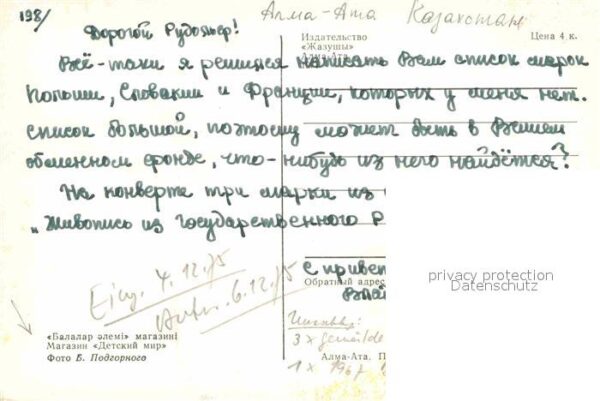 198/
Алма-Ата Казахстан
Дорогой Рудольф!
Издательство
«Жазушы»
Алма-Ата
Цена 4 к.
Всё-таки я решился написать Вам список марок
Польши, Словакии и Франции, которых у меня нет.
Список большой, поэтому может быть в Вашем
обменном фонде, что-нибудь из него найдётся?
На конверте три марки из
„Живопись из Государственного Р
С привет
Обратный адрес
privacy protection
Datenschutz
Eing. 4.12.75
Antw. 6.12.75
3 x gemälde
1 x 1967
«Балалар әлемі» магазині
Магазин «Детский мир»
Фото Б. Подгорного
Алма-Ата.